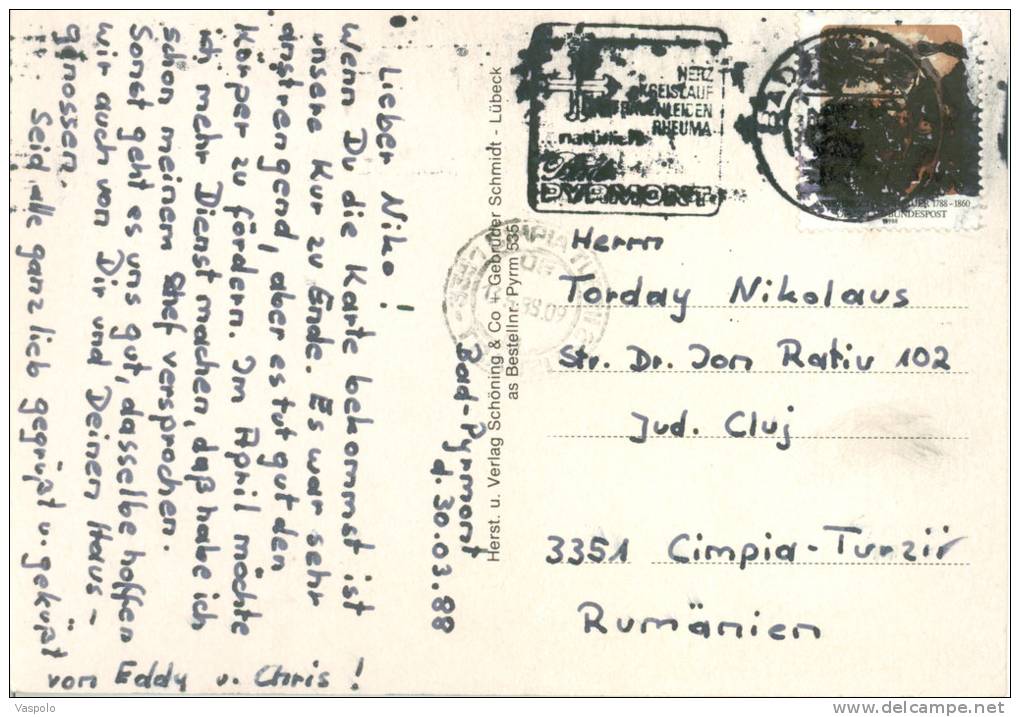 Bad-Pyrmont
d. 30.03.88
Lieber Niko!
Wenn Du die Karte bekommst ist
unsere Kur zu Ende. Es war sehr
anstrengend, aber es tut gut den
Körper zu fördern. Im April möchte
ich mehr Dienst machen, daß habe ich
schon meinem Chef versprochen.
Sonst geht es uns gut, dasselbe hoffen
wir auch von Dir und Deinen Haus-
genossen.
Seid alle ganz lieb gegrüßt u. geküßt
von Eddy u. Chris!
Herst. u. Verlag Schöning & Co + Gebrüder Schmidt - Lübeck
as Bestellnr. Pyrm 535
HERZ
KREISLAUF
FRAUENLEIDEN
RHEUMA
natürlich
Bad
PYRMONT
BAD
1788 - 1860
BUNDESPOST
Herrn
Torday Nikolaus
Str. Dr. Ion Rativ 102
Jud. Cluj
3351 Cimpia-Turzii
Rumänien
Vaspolo
delcampe.net